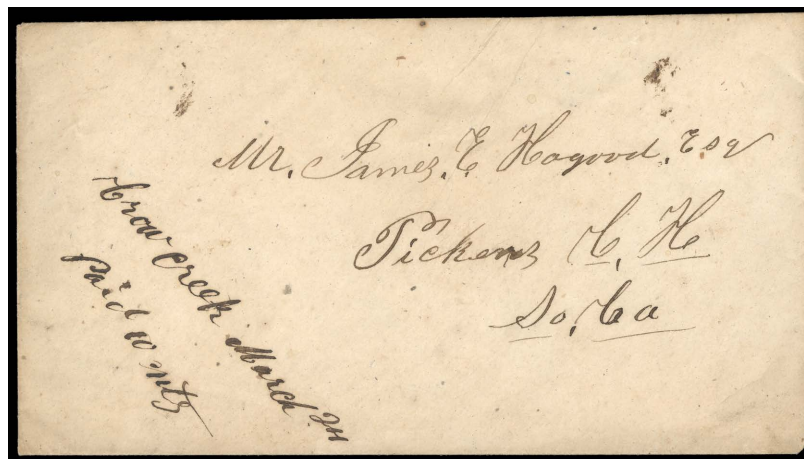 Mr. James. E Hagood. Esq
Pickens C. H
So. Ca
Crow Creek March 24
Paid 10 cnts